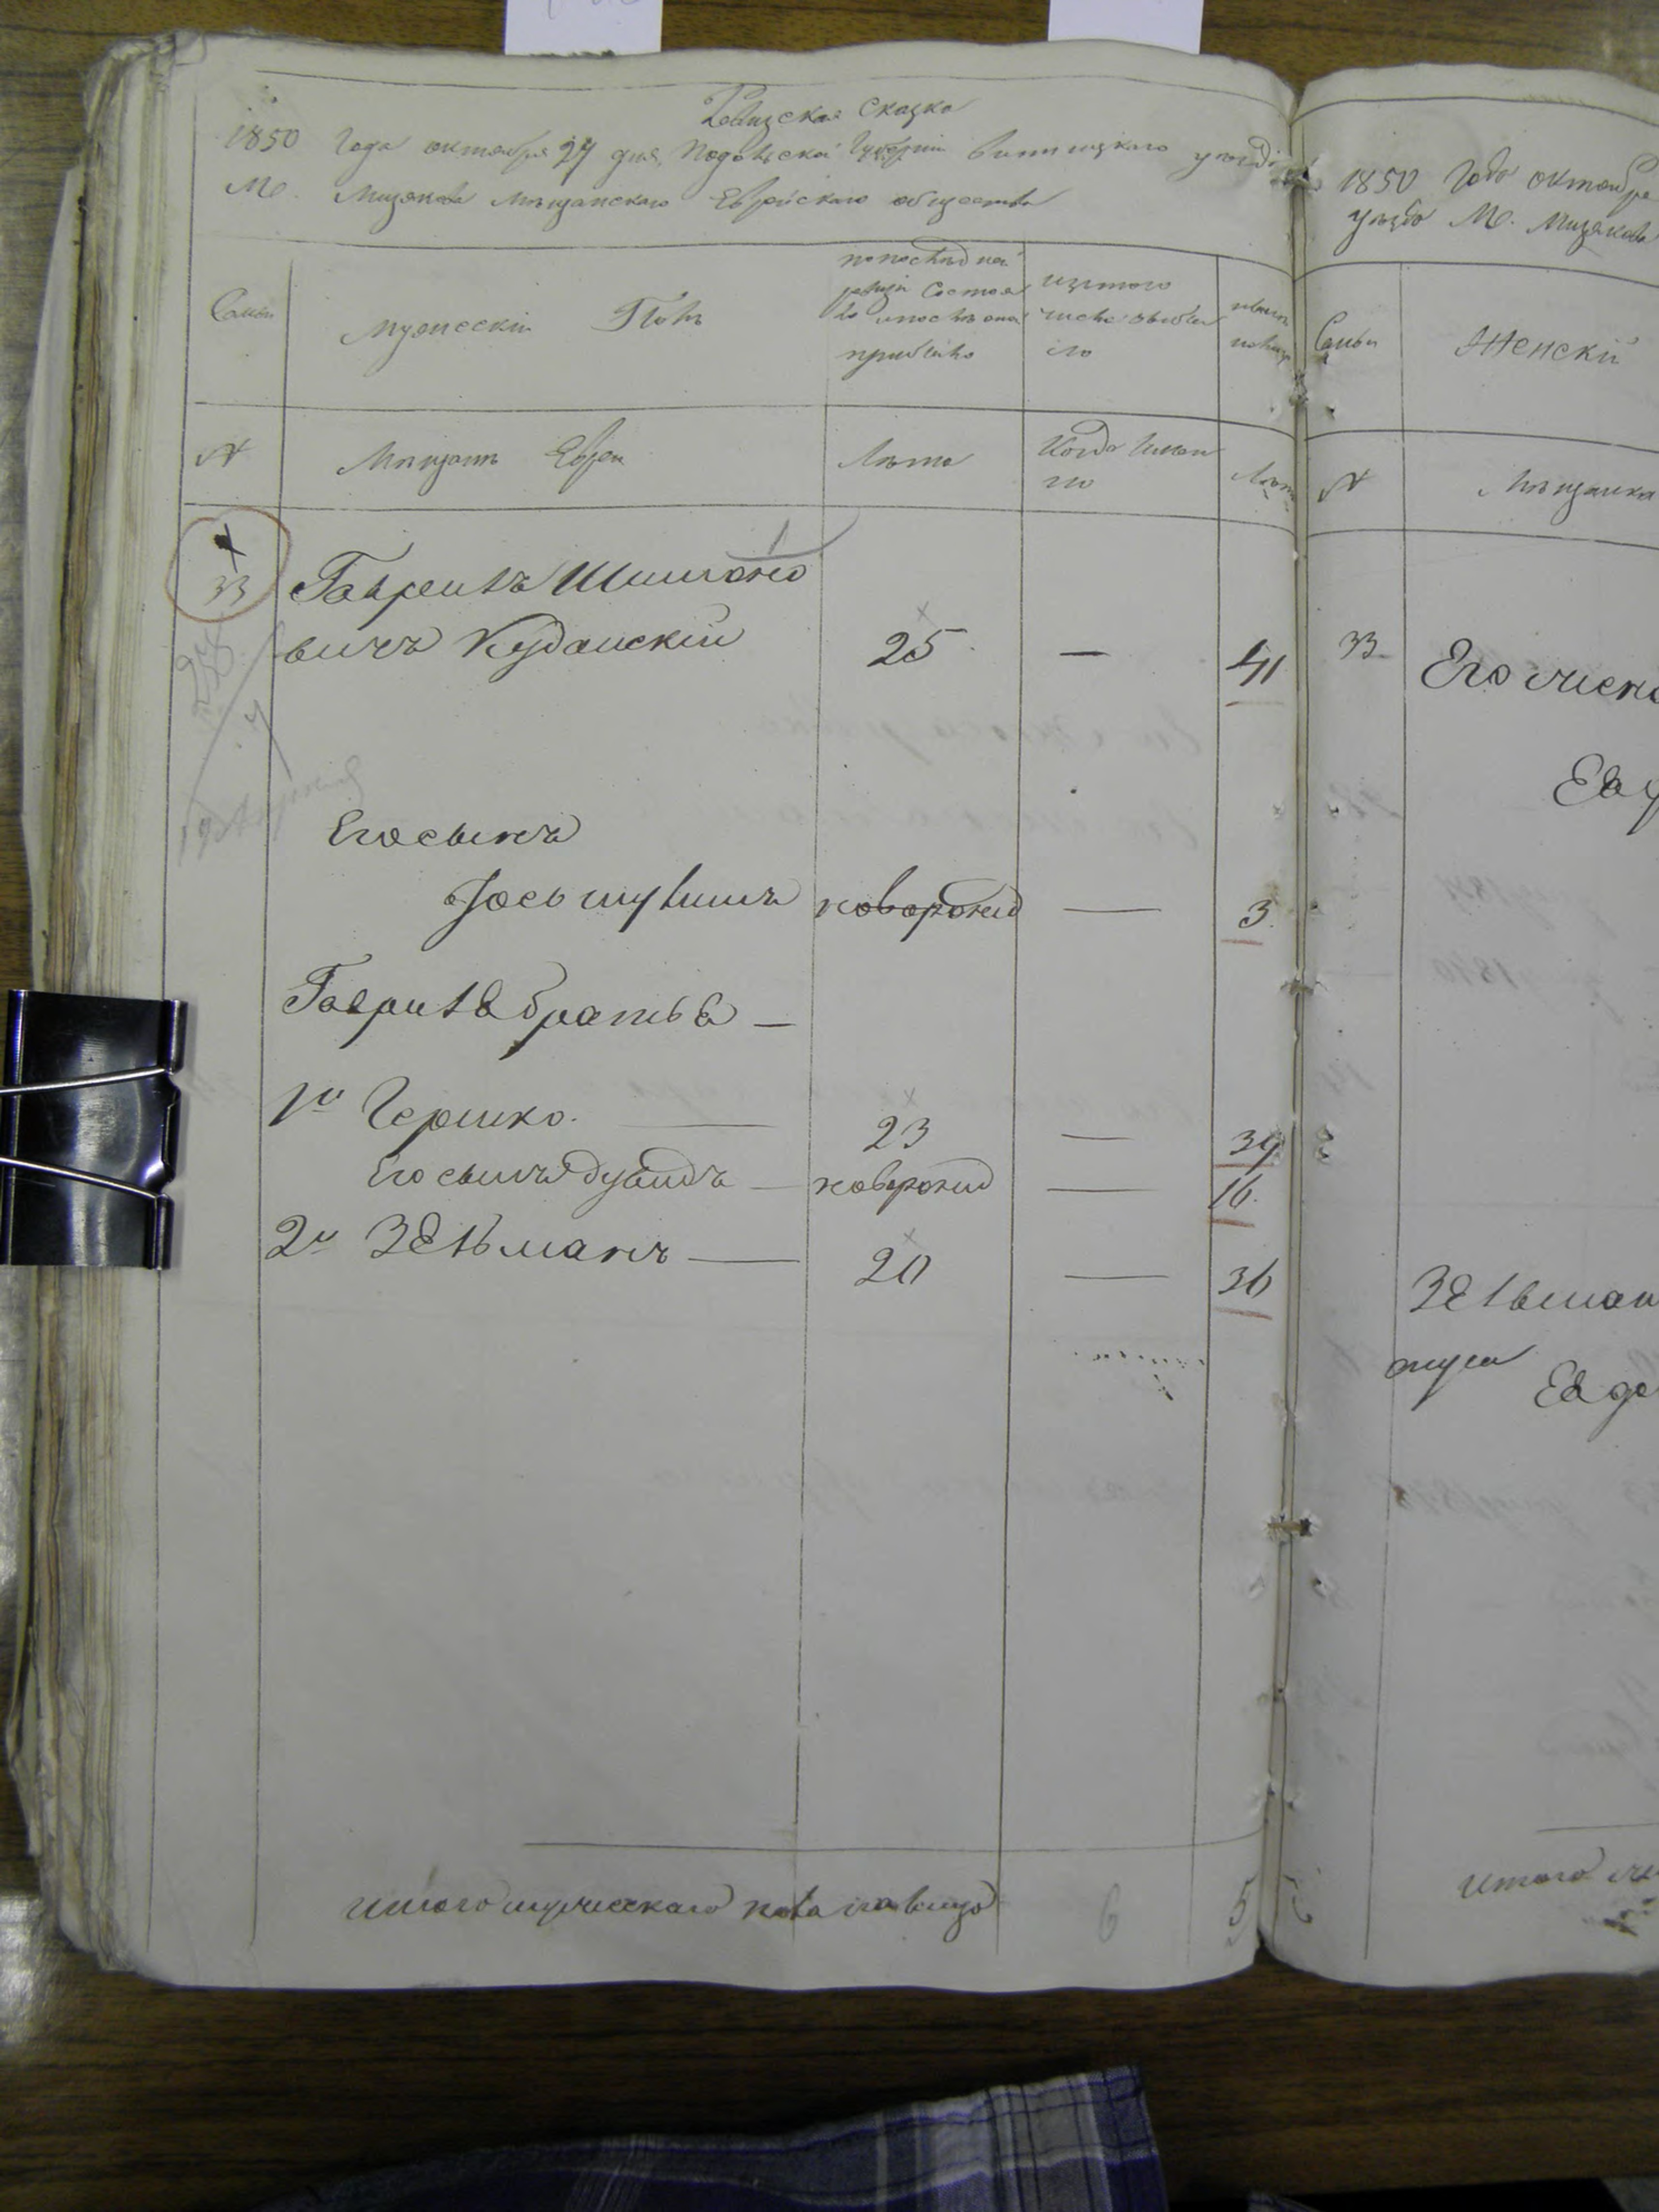 Ревизская Сказка
1850 Года октября 27 дня, Подольской Губернии винницкаго уезда
М. Мизякова мѣщанскаго Еврейскаго общества
Семьи
Мужескій Полъ
попослѣдней
ревизіи Состоя
ло ипослѣ оной
прибыло
изтого
числа выбы
ло
нынѣ
налицо
№
Мѣщанъ Евреи
Лѣта
Когда Имен
но
Лѣта
33
Гаврилъ Шимоно
вичъ Куданскій 25 — 41
Его сынъ
Іось шулимъ новорожд — 3
Гаврила братья —
1й Гершко. — 23 — 39
Его сынъ дувидъ — новорожд — 16.
2й Зельманъ — 20 — 36
итого мужескаго пола налицо 6 5
1850 Года октября
уезда М. Мизякова
Семьи
Женскій
№
Мѣщанка
33
Его жена
Зельман